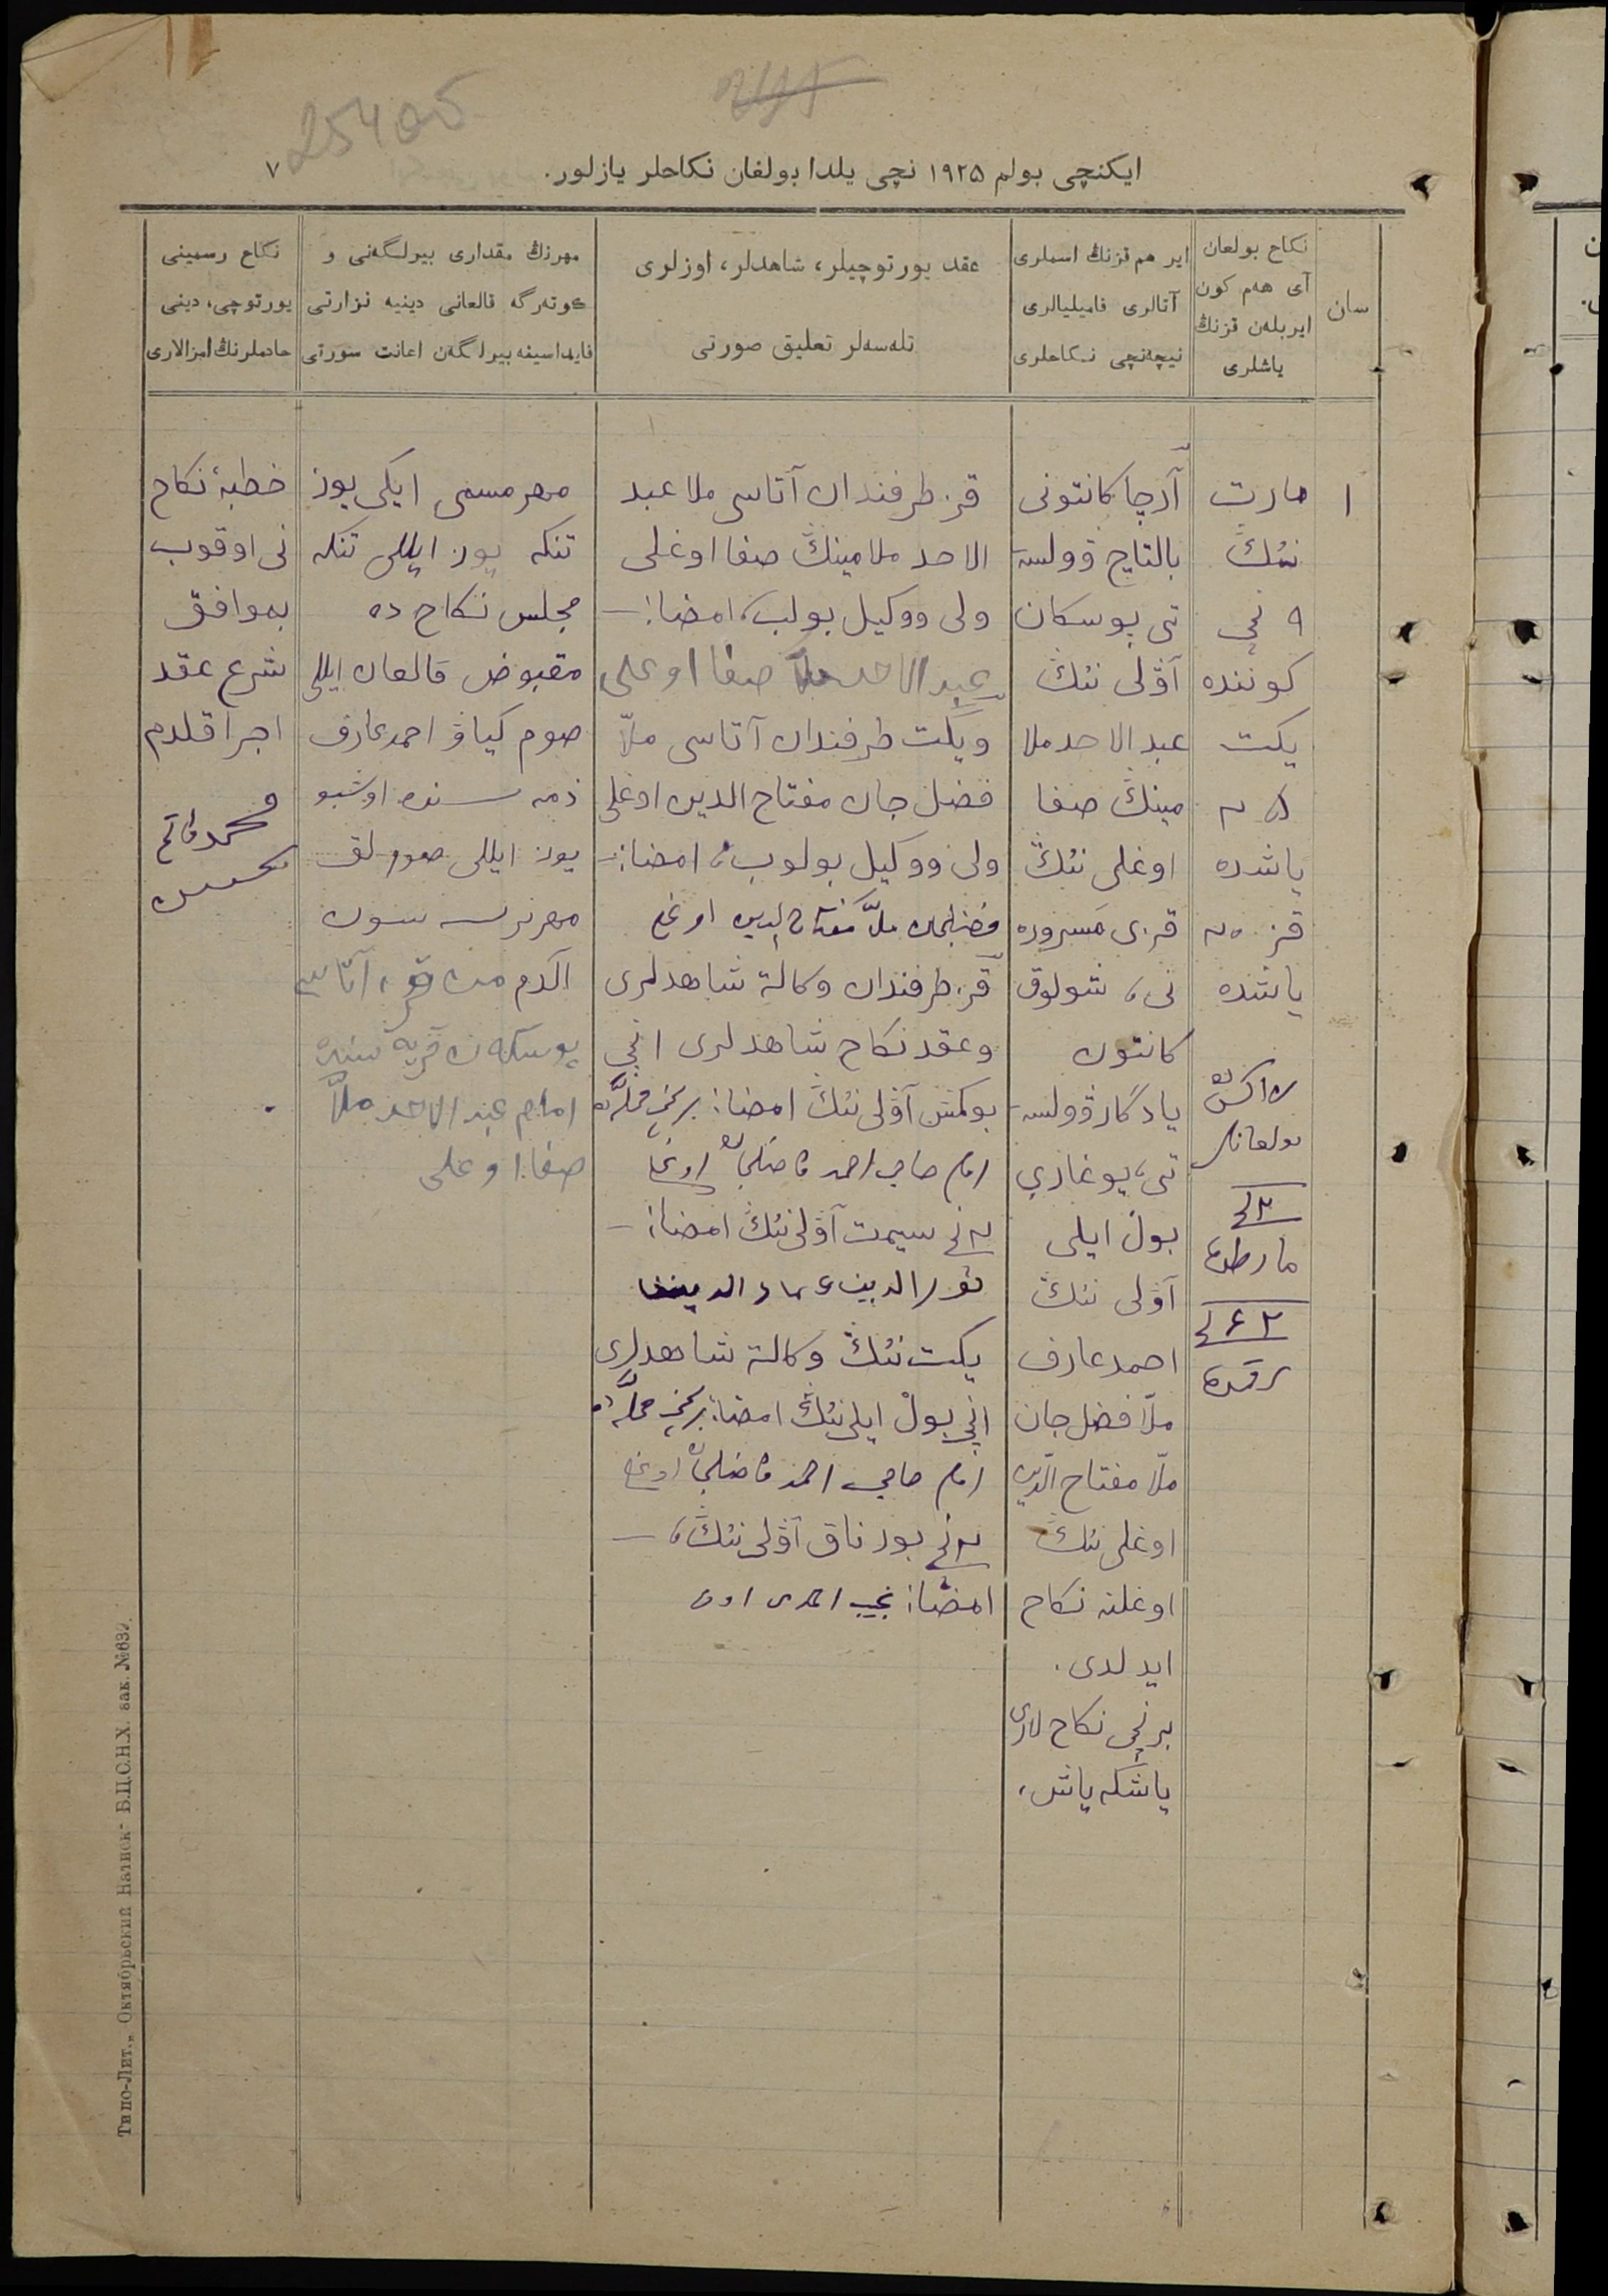 25405
ایکنچی بولم ۱۹۲۵ نچی یلدا بولغان نکاحلر یازلور.
۷
سان
نکاح بولغان
آی هەم کون
ایر بلەن قزنڭ
یاشلری
ایر هم قزنڭ اسملری
آتالری فامیلیالری
نیچەنچی نکاحلری
عقد یورتوچیلر، شاهدلر، اوزلری
تلەسەلر تعلیق صورتی
مهرنڭ مقداری بیرلگەنی و
کوتەرگە قالغانی دینیه نزارتی
فایداسینه بیرلگەن اعانت صورتی
نکاح رسمینی
یورتوچی، دینی
خادملرنڭ امزالاری
۱
مارت
ننڭ
۹ نچی
کوننده
یکت
۲۵
یاشده
قز ۲۵
یاشنده
بولغانلر
مارطده
آرچا کانتونی
بالتاچ وولسـ
تی پوسکان
آولی ننڭ
عبد الاحد ملا
مینڭ صفا
اوغلی ننڭ
قزی مسروره
نی، شولوق
کانتون
یادگار وولسـ
تی، یوغاری
بول ایلی
آولی ننڭ
احمد عارف
ملا فضل جان
ملا مفتاح الدین
اوغلی ننڭ
اوغلنه نکاح
ایدلدی.
برنچی نکاح لاری
یاشکه یاش،
قز طرفندان آتاسی ملا عبد
الاحد ملا مینڭ صفا اوغلی
ولی ووکیل بولب، امضا: —
عبد الاحد ملا صفا اوغلی
ویکت طرفندان آتاسی ملا
فضل جان مفتاح الدین اوغلی
ولی ووکیل بولوب، امضا: —
فضلجان ملا مفتاح الدین اوغلی
قز طرفندان وکالة شاهدلری
وعقد نکاح شاهدلری ۱نچی
آولی ننڭ امضا: برنچی محله
امام حاجی احمد اوغلی
۲نچی سیمت آولی ننڭ امضا: —
نورالدین عماد الدین
یکت ننڭ وکالة شاهدلری
۱نچی بول ایلی ننڭ امضا: برنچی محله
امام حاجی احمد اوغلی
۲نچی بورناق آولی ننڭ، —
امضا: نجیب
مهر مسمی ایکی یوز
تنکه یوز ایللی تنکه
مجلس نکاح ده
مقبوض قالغان ایللی
صوم کیاو احمد عارف
ذمه سنده اوشبو
یوز ایللی صوم لق
مهرنی
آلدم من قز آتاسی
پوسکەن قریه سنده
امام عبد الاحد ملا
صفا اوغلی
خطبۀ نکاح
نی اوقوب
بموافق
شرع عقد
اجرا قلدم
Типо-Лит. „Октябрьский Натиск“ Б.Ц.С.Н.Х. зак. №63